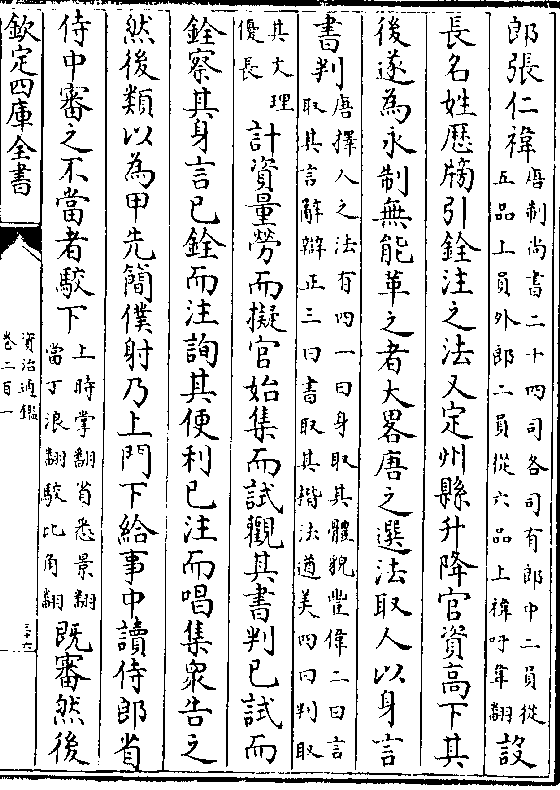 郎張仁褘唐制尚書二十四司各司有郎中二員從
五品上員外郎二員從六品上褘吁韋翻設
長名姓歷牓引銓注之法又定州縣升降官資高下其
後遂為永制無能革之者大畧唐之選法取人以身言
書判唐擇人之法有四一曰身取其體貌豐偉二曰言
取其言辭辯正三曰書取其楷法遒美四曰判取
其文理
優長計資量勞而擬官始集而試觀其書判已試而
銓察其身言已銓而注詢其便利已注而唱集衆告之
然後類以為甲先簡僕射乃上門下給事中讀侍郎省
侍中審之不當者駮下上時掌翻省悉景翻
當丁浪翻駮比角翻既審然後
欽定四庫全書
資治通鑑
卷二百一
三十六